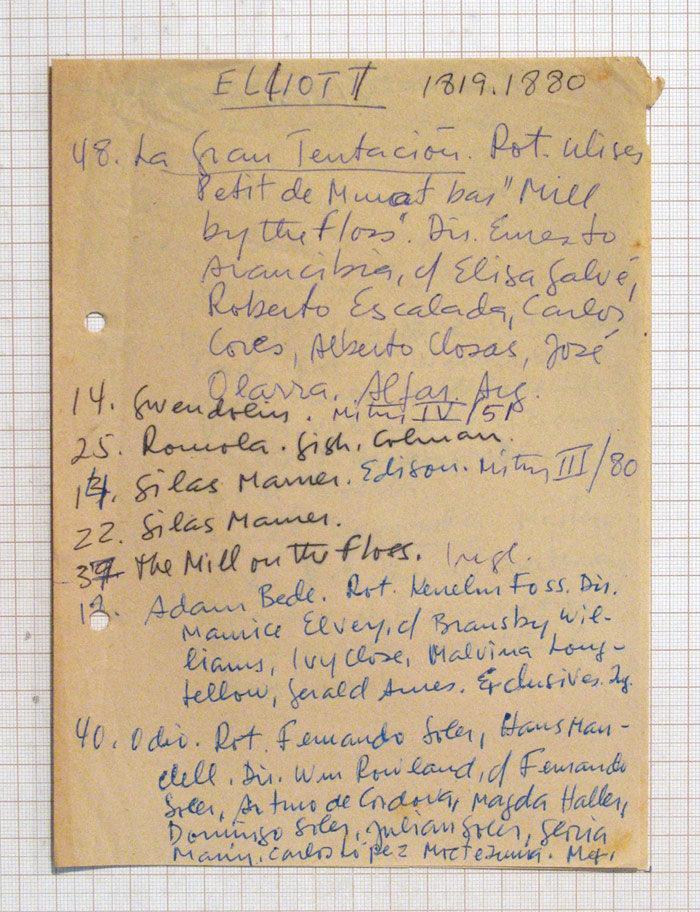 ELLIOTT 1819.1880
48. La Gran Tentación. Rot. Ulises
Petit de Murat bas "Mill
by the Floss". Dir. Ernesto
Arancibia, c/ Elisa Galvé,
Roberto Escalada, Carlos
Cores, Alberto Closas, José
Olarra. Alfar. Arg.
14. Gwendolin. Mitry IV/51
25. Romola. Gish, Colman.
14. Silas Marner. Edison. Mitry III/80
22. Silas Marner.
37. The Mill on the Floss. Ingl.
18. Adam Bede. Rot. Kenelm Foss. Dir.
Maurice Elvey, c/ Bransby Wil-
liams, Ivy Close, Malvina Long-
fellow, Gerald Ames. Exclusives. Ing.
40. Odio. Rot. Fernando Soler, Hans Man-
dell. Dir. Wm Rowland, c/ Fernando
Soler, Arturo de Cordova, Magda Haller,
Domingo Soler, Julian Soler, Gloria
Marín, Carlos López Moctezuma. Mex.